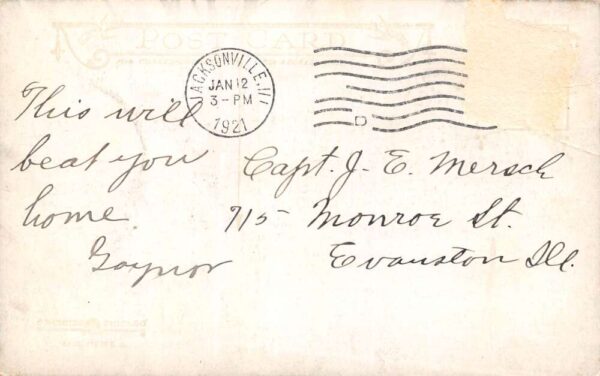 POST CARD
JACKSONVILLE, ILL.
JAN 12
3-PM
1921
This will
beat you
home.
Gaynor
Capt. J. E. Mersch
715 Monroe St.
Evanston Ill.